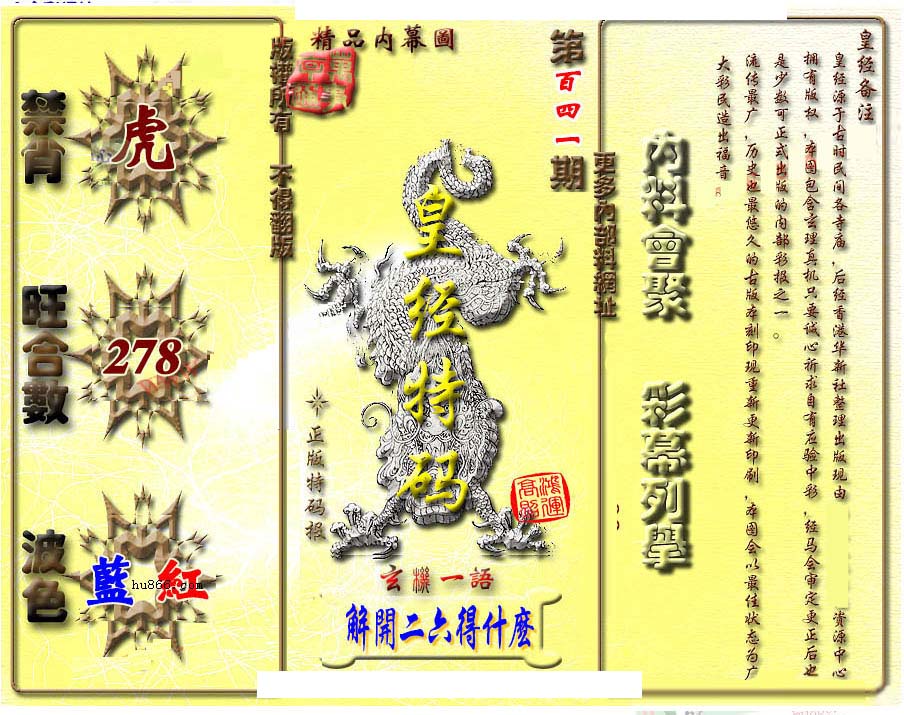 精品内幕圖
第百四一期
版權所有 不得翻版
更多内部料網址
禁肖
虎
旺合數
278
波色
藍 紅
hu866.com
皇经特码
正版特码报
鸿運高照
玄機一語
解開二六得什麽
内料會聚
彩幕列舉
皇经备注
皇经源于古时民间各寺庙,后经香港华新社整理出版现由 资源中心
拥有版权,本图包含玄理真机只要诚心祈求自有应验中彩,经马会审定更正后也
是少数可正式出版的内部彩报之一。
流传最广,历史也最悠久的古版本刻印现重新更新印刷,本图会以最佳状态为广
大彩民造出福音